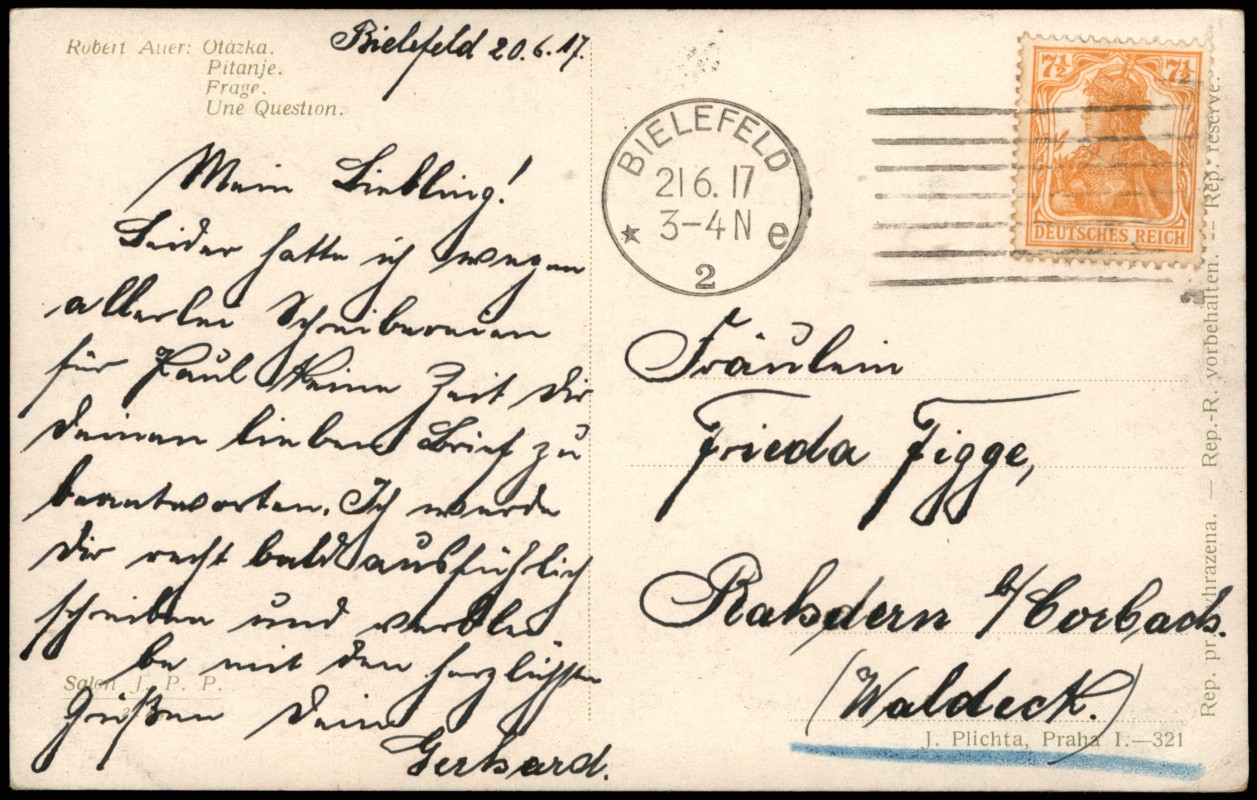 Robert Auer: Otázka.
Pitanje.
Frage.
Une Question.
Bielefeld 20.6.17.
Mein Liebling!
Leider hatte ich wegen
allerlei Schreibereien
für Paul keine Zeit dir
deinen lieben Brief zu
beantworten. Ich werde
dir recht bald ausführlich
schreiben und verblei
be mit den herzlichsten
Grüßen dein
Gerhard.
Salon J. P. P.
BIELEFELD
21 6. 17
3-4 N
★ e
2
7½ 7½
DEUTSCHES REICH
Fräulein
Frieda Figge,
b/Corbach.
(Waldeck.)
J. Plichta, Praha I.—321
Rep. hrazena. — Rep.-R. vorbehalten. — Rep. reserve.